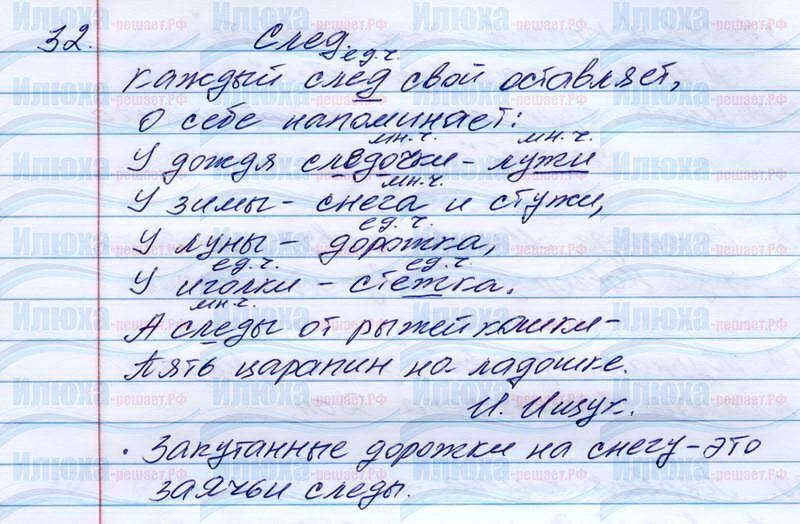 32. След.
ед.ч.
Каждый след свой оставляет,
О себе напоминает:
мн.ч. мн.ч.
У дождя следочки - лужи
мн.ч.
У зимы - снега и стужи,
ед.ч.
У луны - дорожка,
ед.ч. ед.ч.
У иголки - стежка.
мн.ч.
А следы от рыжей кошки -
Пять царапин на ладошке.
• Запутанные дорожки на снегу - это
заячьи следы.